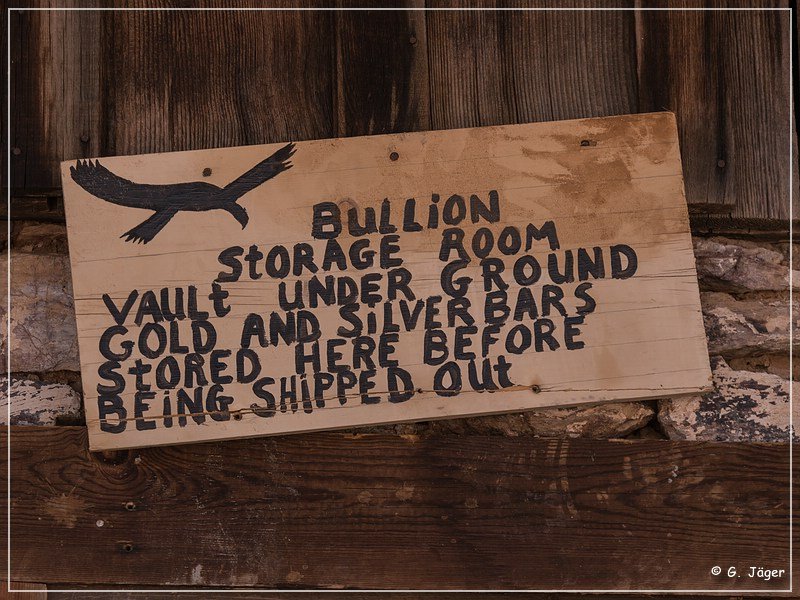 BULLiON
StORAGE ROOM
VAULt UNDER GROUND
GOLD AND SiLVER BARS
StORED HERE BEFORE
BEiNG SHiPPED OUt
© G. Jäger